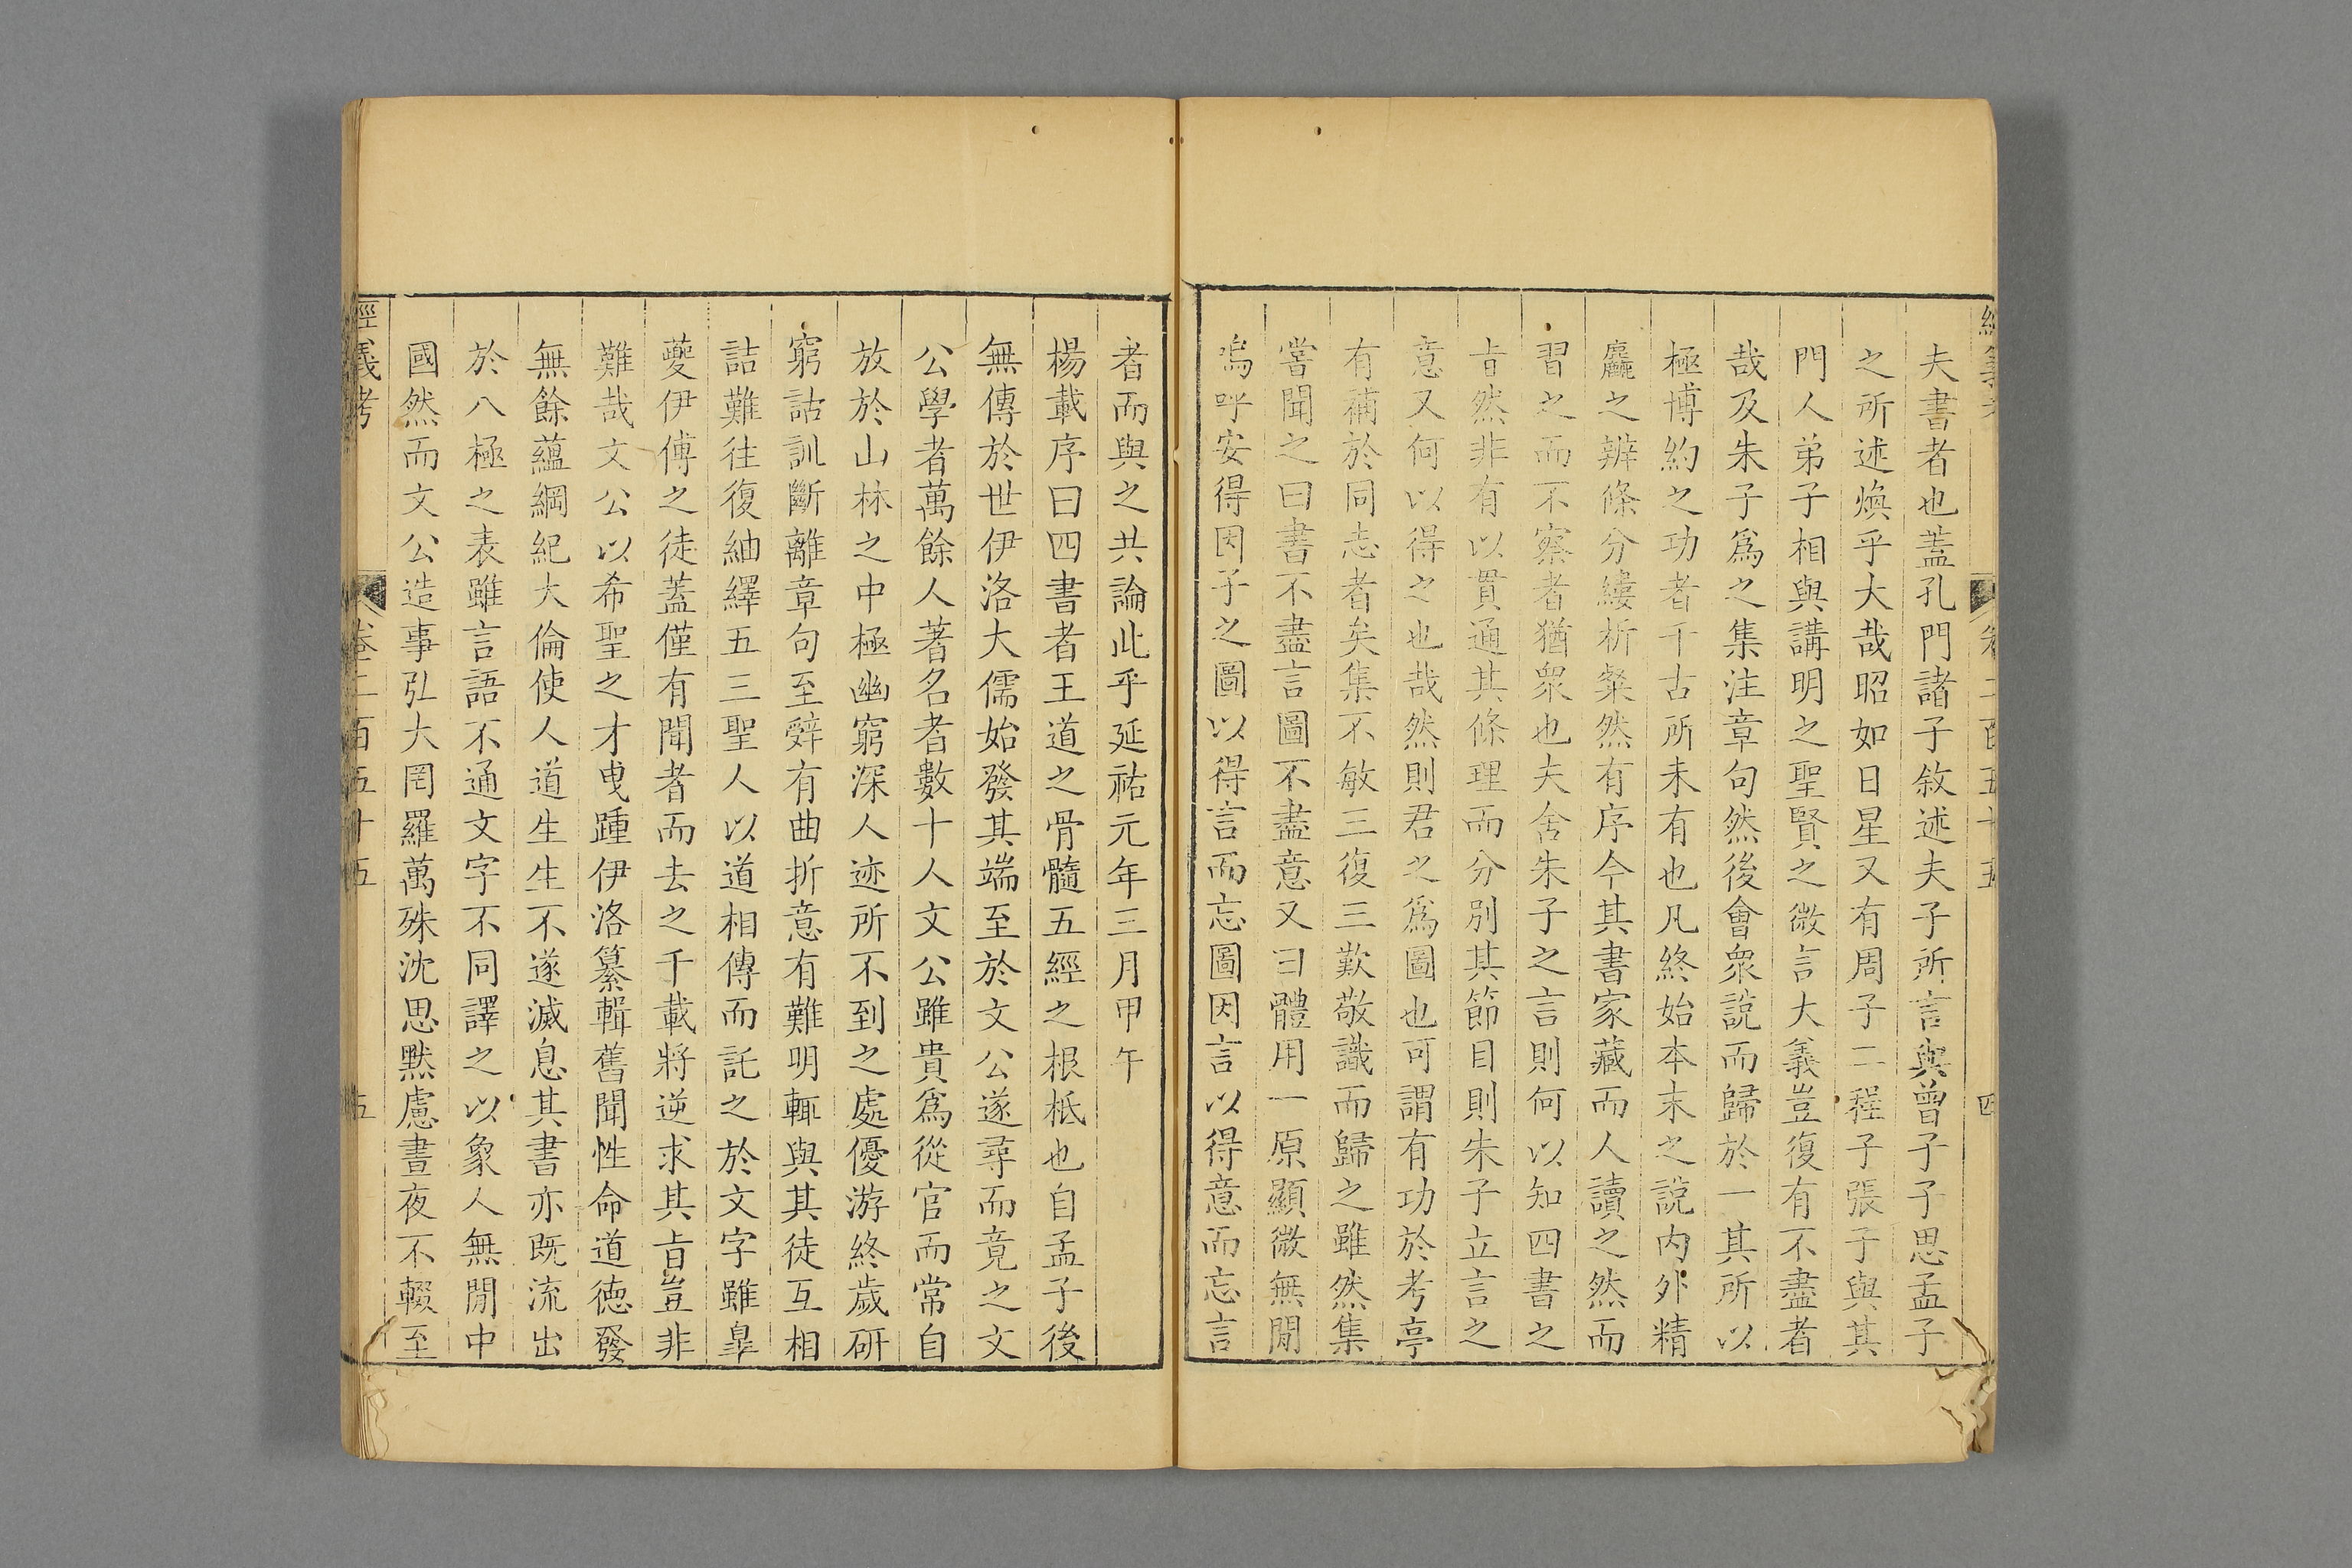 夫書者也蓋孔門諸子敘述夫子所言與曾子子思孟子
之所述煥乎大哉昭如日星又有周子二程子張子與其
門人弟子相與講明之聖賢之微言大義豈復有不盡者
哉及朱子爲之集注章句然後會衆說而歸於一其所以
極博約之功者千古所未有也凡終始本末之說内外精
麤之辨條分縷析粲然有序今其書家藏而人讀之然而
習之而不察者猶衆也夫舍朱子之言則何以知四書之
旨然非有以貫通其條理而分別其節目則朱子立言之
意又何以得之也哉然則君之爲圖也可謂有功於考亭
有補於同志者矣集不敏三復三歎敬識而歸之雖然集
嘗聞之曰書不盡言圖不盡意又曰體用一原顯微無閒
嗚呼安得因子之圖以得言而忘圖因言以得意而忘言
者而與之共論此乎延祐元年三月甲午
楊載序曰四書者王道之骨髓五經之根柢也自孟子後
無傳於世伊洛大儒始發其端至於文公遂尋而竟之文
公學者萬餘人著名者數十人文公雖貴爲從官而常自
放於山林之中極幽窮深人迹所不到之處優游終歲研
窮詁訓斷離章句至辭有曲折意有難明輒與其徒互相
詰難往復紬繹五三聖人以道相傳而託之於文字雖皋
夔伊傅之徒蓋僅有聞者而去之千載將逆求其旨豈非
難哉文公以希聖之才曳踵伊洛纂輯舊聞性命道德發
無餘蘊綱紀大倫使人道生生不遂滅息其書亦既流出
於八極之表雖言語不通文字不同譯之以象人無閒中
國然而文公造事弘大罔羅萬殊沈思默慮晝夜不輟至
經義考 卷二百五十五 五